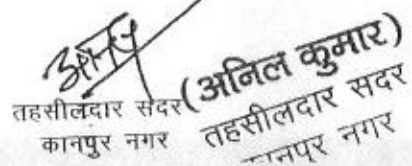 तहसीलदार सदर
कानपुर नगर
(अनिल कुमार)
तहसीलदार सदर
कानपुर नगर